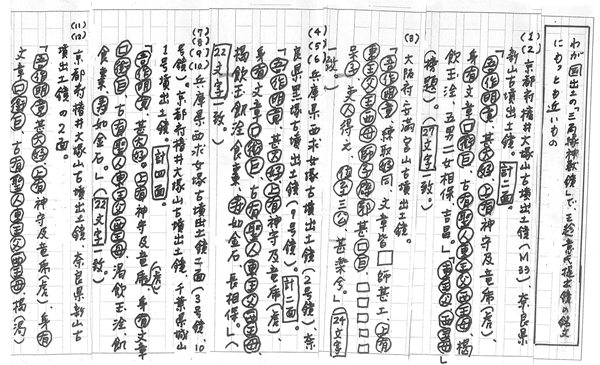 わが国出土の「三角縁神獣鏡」で、王趁意氏提出鏡の銘文
にもっとも近いもの
(1)(2) 京都府椿井大塚山古墳出土鏡(M33)、奈良県
新山古墳出土鏡。計二面
「吾作明竟 甚大好 上有神守及竜虎(虎)、
身有文章口銜巨 古有聖人東王父西王母 楬
飲玉泩 五男二女相保吉昌」「東王父西王母」
(榜題)。(27文字一致。)
(3) 大阪府安満宮山古墳出土鏡。
「吾作明竟 練取好同 文章皆□師甚工 上有
東王父王西母 師子辟邪甚口巨 □□□□
吴□ 夫人得之 位至三公 甚楽兮」(24文字
一致)
(4)(5)(6) 兵庫県西求女塚古墳出土鏡(2号鏡)、奈
良県黒塚古墳出土鏡(9号鏡)。計二面。
「吾作明竟 甚大好 上有神守及竜虎(虎)、
身有文章口銜巨 古有聖人東王父西王母
楬飲玉飮泩食棗 寿如金石 長相保」(
22文字一致)。
(7)(8)(9)(10) 兵庫県西求女塚古墳出土鏡二面(3号鏡、10
号鏡)。京都府椿井大塚山古墳出土鏡、千葉県城山
1号墳出土鏡 計四面。
「吾作明竟 甚大好 上有神守及竜虎(虎) 身有文章
口銜巨 古有聖人東王父西王母 渇飲玉泩飢
食棗 寿如金石。」(22文字一致)。
(11)(12) 京都府椿井大塚山古墳出土鏡 奈良県新山古
墳出土鏡の2面。
「吾作明竟 甚大好 上有神守及竜虎(虎)、身有
文章口銜巨、古有聖人東王父西王母、楬渇)